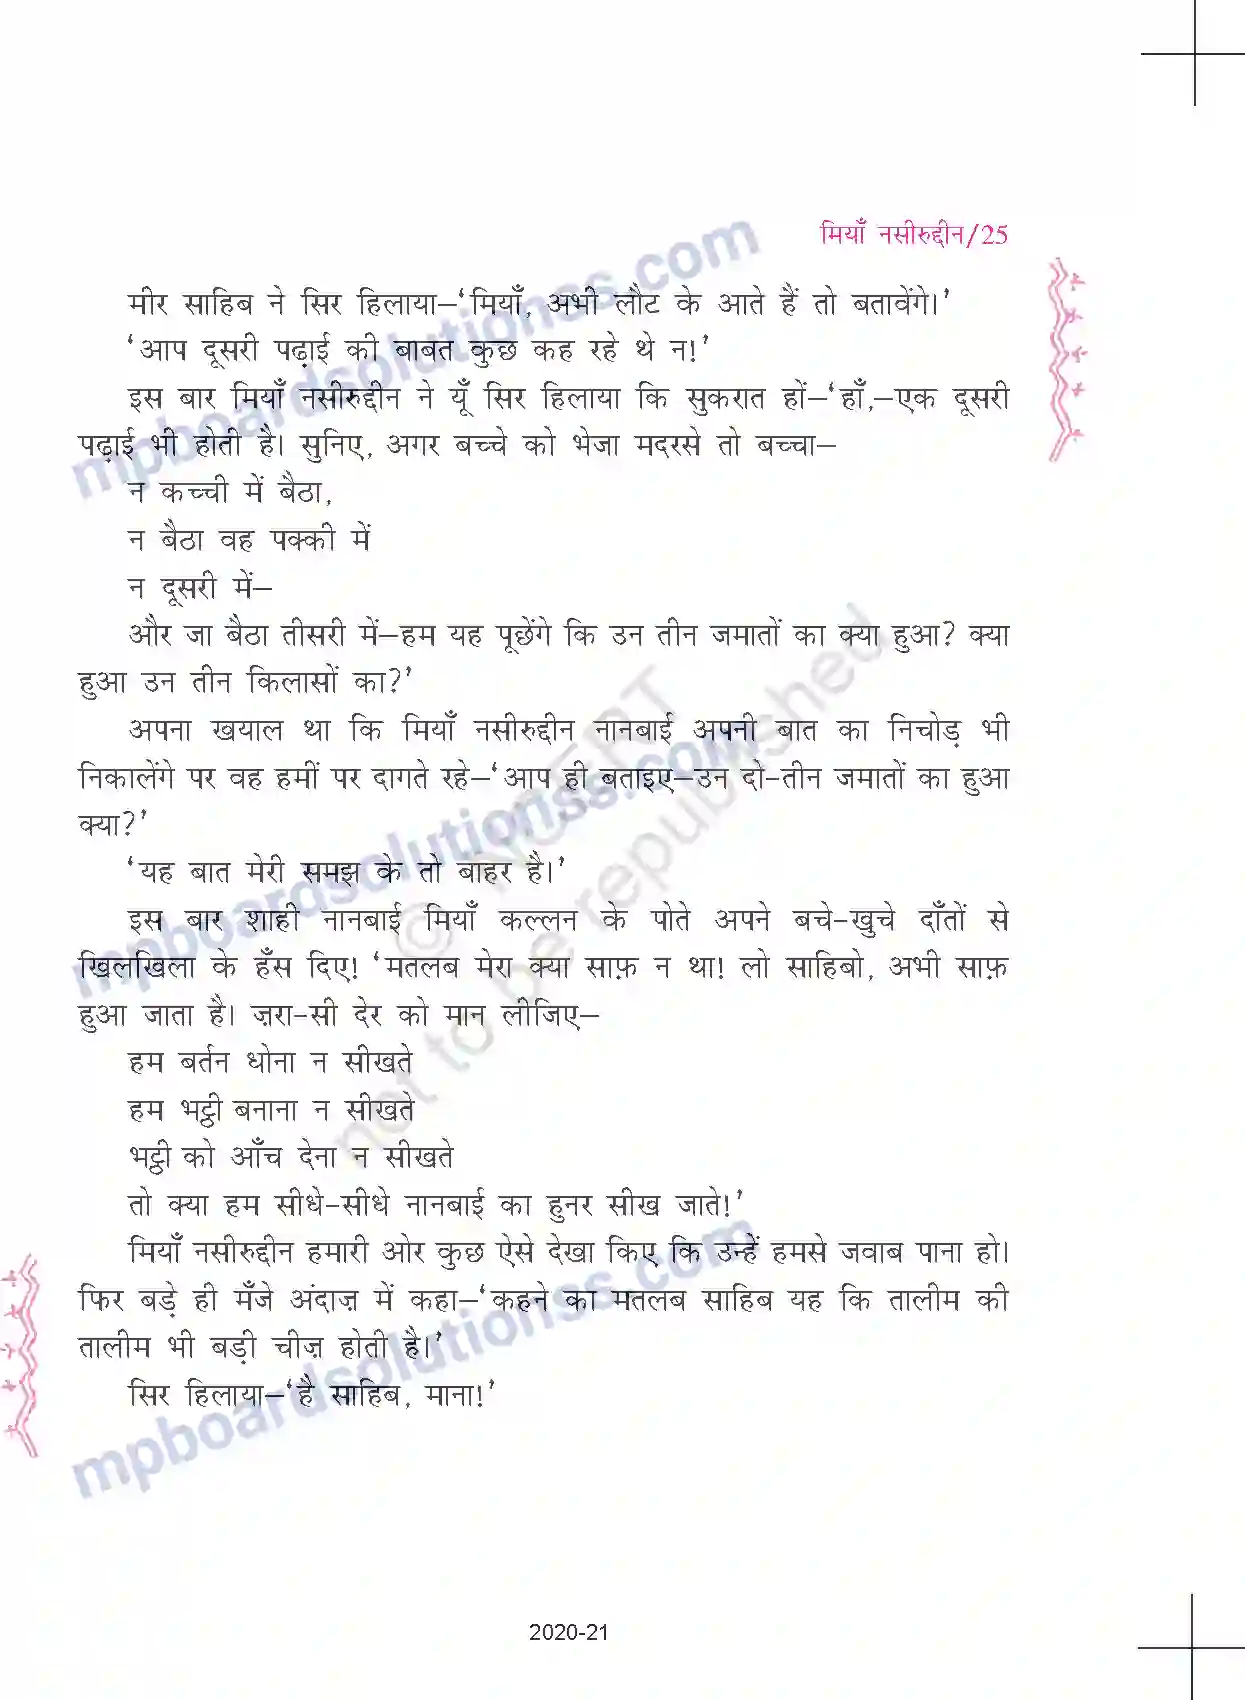 मियाँ नसीरुद्दीन/25
मीर साहिब ने सिर हिलाया–‘मियाँ, अभी लौट के आते हैं तो बतावेंगे।’
‘आप दूसरी पढ़ाई की बाबत कुछ कह रहे थे न!’
इस बार मियाँ नसीरुद्दीन ने यूँ सिर हिलाया कि सुकरात हों–‘हाँ,–एक दूसरी
पढ़ाई भी होती है। सुनिए, अगर बच्चे को भेजा मदरसे तो बच्चा–
न कच्ची में बैठा,
न बैठा वह पक्की में
न दूसरी में–
और जा बैठा तीसरी में–हम यह पूछेंगे कि उन तीन जमातों का क्या हुआ? क्या
हुआ उन तीन किलासों का?’
अपना खयाल था कि मियाँ नसीरुद्दीन नानबाई अपनी बात का निचोड़ भी
निकालेंगे पर वह हमीं पर दागते रहे–‘आप ही बताइए–उन दो-तीन जमातों का हुआ
क्या?’
‘यह बात मेरी समझ के तो बाहर है।’
इस बार शाही नानबाई मियाँ कल्लन के पोते अपने बचे-खुचे दाँतों से
खिलखिला के हँस दिए! ‘मतलब मेरा क्या साफ़ न था! लो साहिबो, अभी साफ़
हुआ जाता है। ज़रा-सी देर को मान लीजिए–
हम बर्तन धोना न सीखते
हम भट्ठी बनाना न सीखते
भट्ठी को आँच देना न सीखते
तो क्या हम सीधे-सीधे नानबाई का हुनर सीख जाते!’
मियाँ नसीरुद्दीन हमारी ओर कुछ ऐसे देखा किए कि उन्हें हमसे जवाब पाना हो।
फिर बड़े ही मँजे अंदाज़ में कहा–‘कहने का मतलब साहिब यह कि तालीम की
तालीम भी बड़ी चीज़ होती है।’
सिर हिलाया–‘है साहिब, माना!’
2020-21
mpboardsolutionss.com
mpboardsolutionss.com
mpboardsolutionss.com
© NCERT
not to be republished